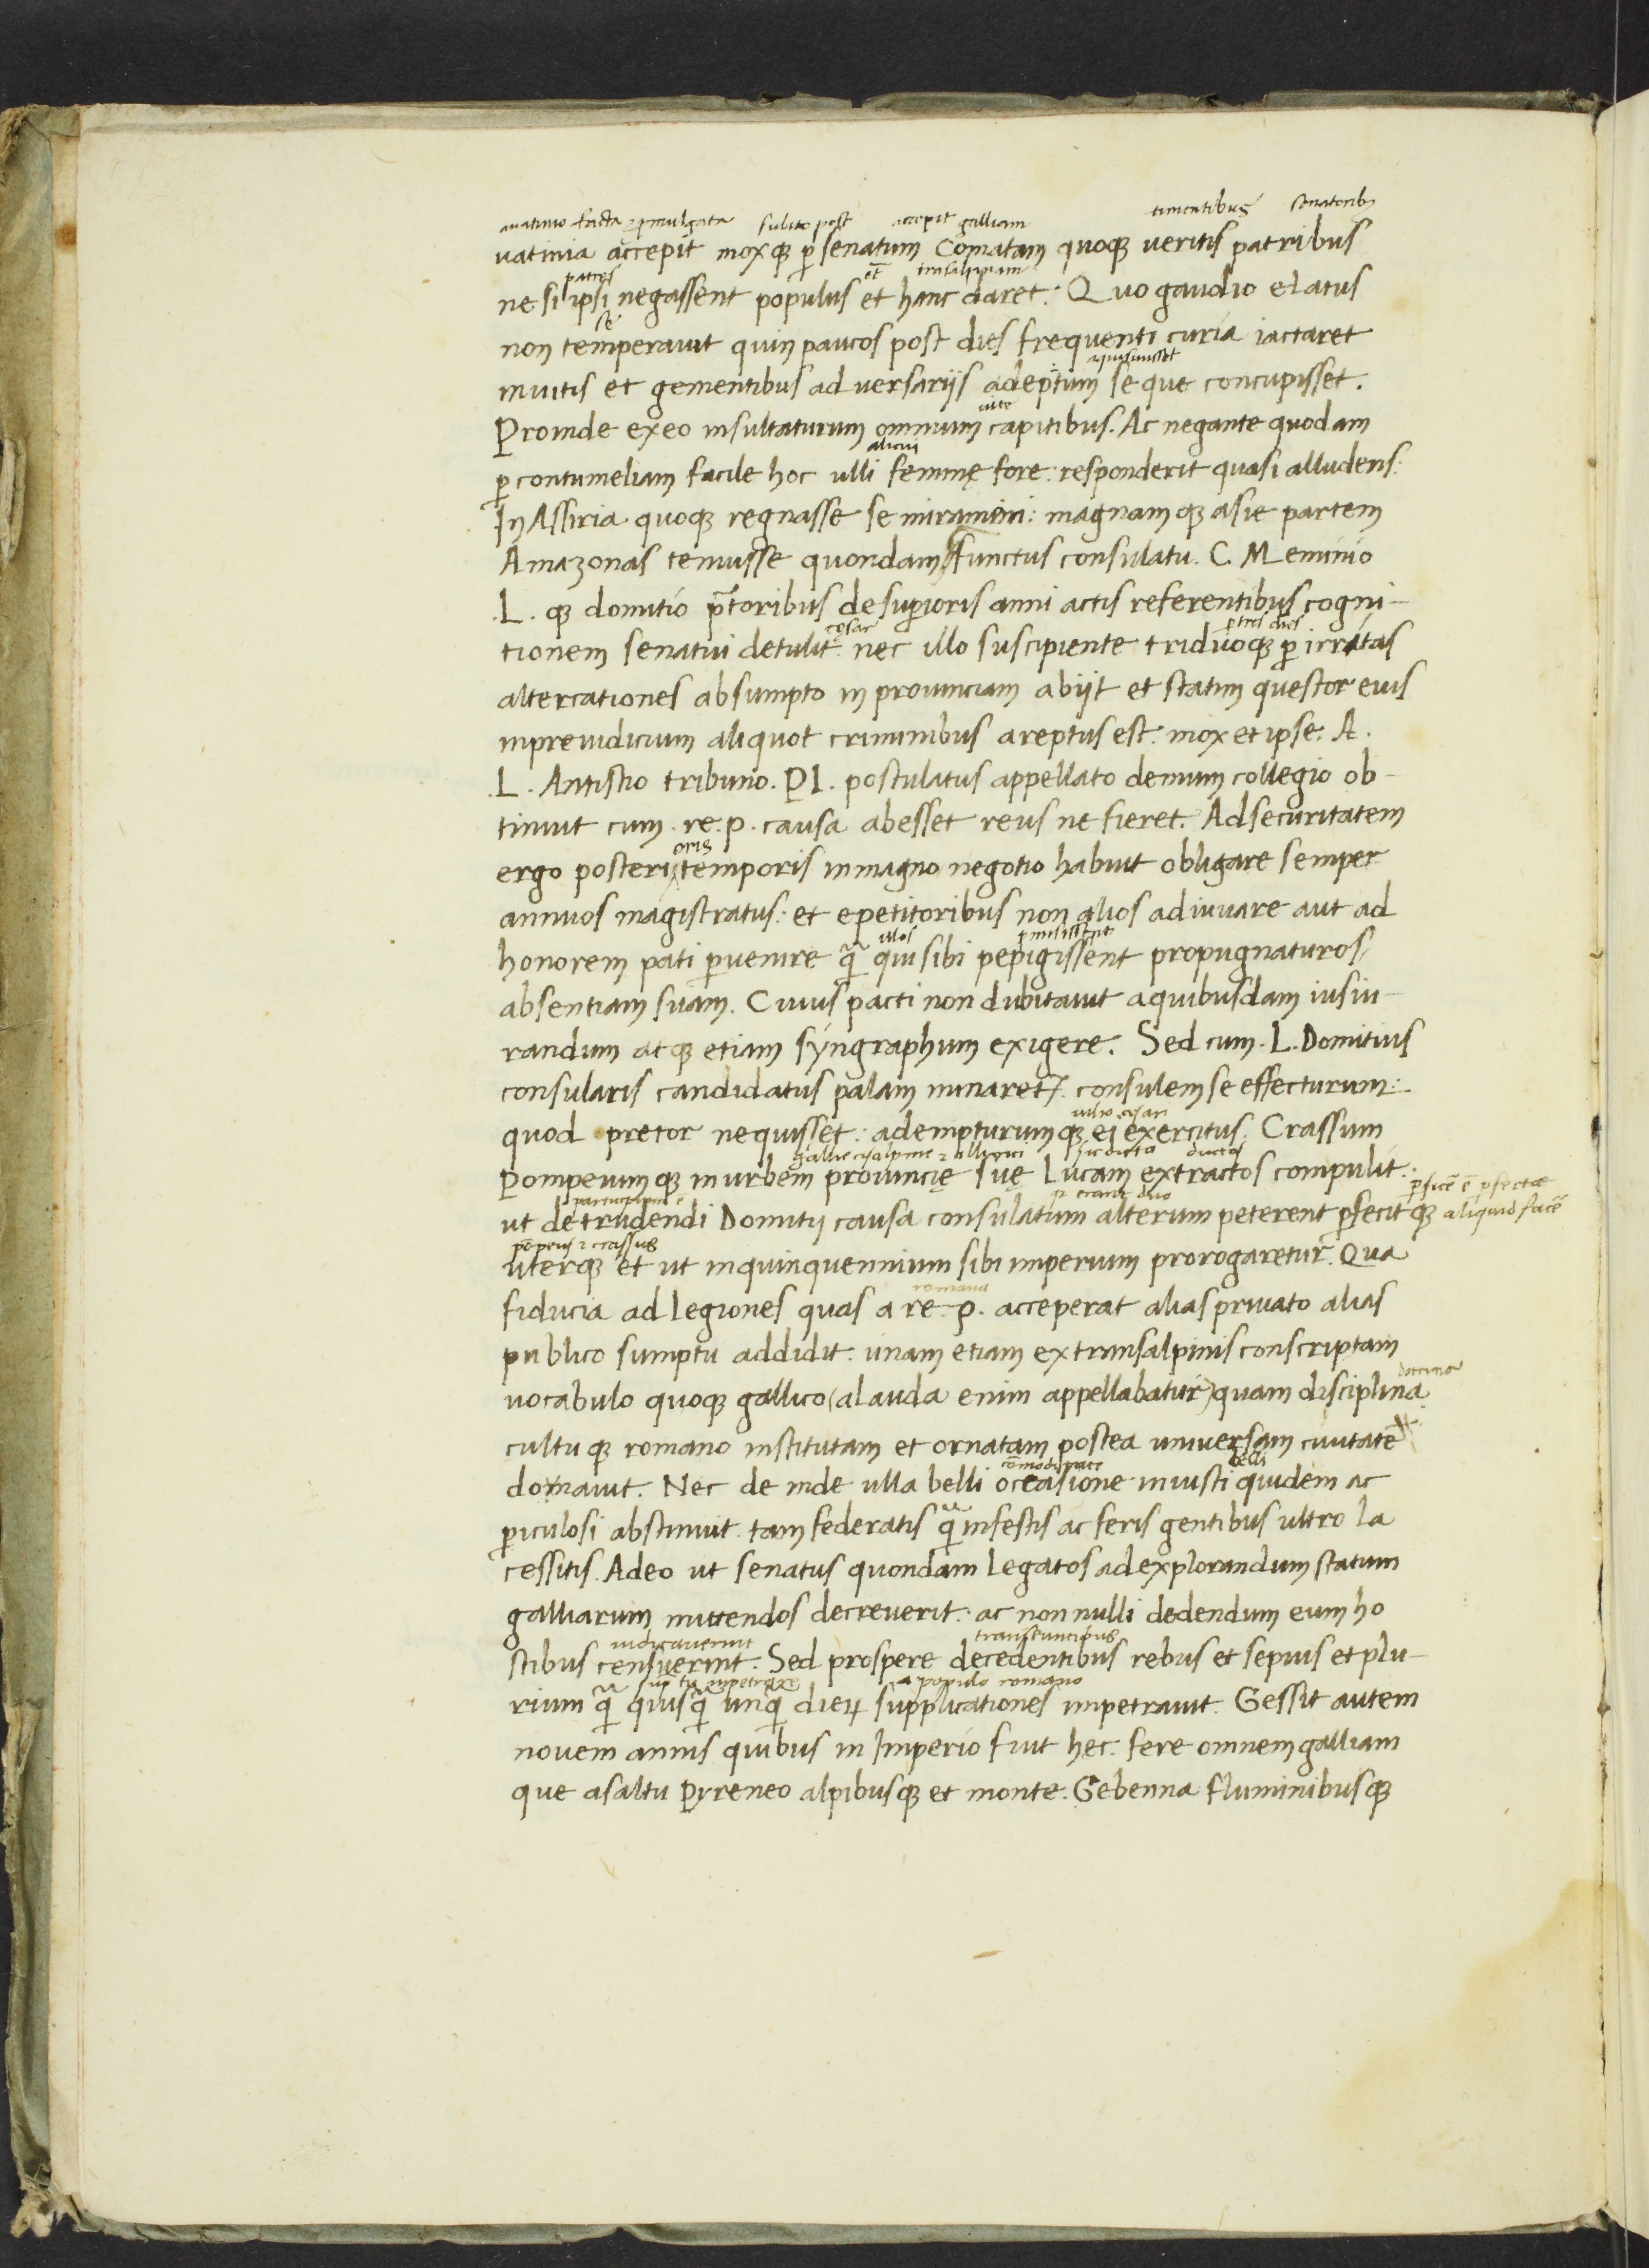 auatinio facta ⁊ pmulgata subito post accepit galliam timentibus senatorib;
uatinia accepit moxq; ꝑ senatum Comatam quoq; ueritis patribus
patres et̄ trāsalpinam
ne si ipsi negassent populus et hanc daret: Quo gaudio elatus
se
non temperauit quin paucos post dies frequenti curia iactaret
aquisiuisset
inuitis et gementibus aduersarijs adeptum se que concupisset.
uite
Proinde ex eo insultaturum omnium capitibus. Ac negante quodam
alicui
ꝑ contumeliam facile hoc ulli feminę fore: responderit quasi alludens:
In Assiria quoq; regnasse semiramim: magnamq; asie partem
Amazonas tenuisse quondam functus consulatu. C. Meminio
.L. q; domitio p̄toribus de superioris anni actis referentibus cogni-
cęsar p tres dies
tionem senatui detulit: nec illo suscipiente triduoq; ꝑ irritas
altercationes absumpto in prouinciam abijt et statim questor eius
inpreiudicium aliquot criminibus areptus est: mox et ipse. A.
.L. Antistio tribuno. Pl. postulatus appellato demum collegio ob-
tinuit cum. re. p. causa abesset reus ne fieret. Ad securitatem
oris
ergo posteri temporis in magno negotio habuit obligare semper
annuos magistratus: et e petitoribus non alios adiuuare aut ad
illos pmisissent
honorem pati ꝑuenire q̃ qui sibi pepigissent propugnaturos
absentiam suam. Cuius pacti non dubitauit a quibusdam iusiu-
randum atq; etiam syngraphum exigere. Sed cum. L. Domitius
consularis candidatus palam minaret᷑. consulem se effecturum:
iulio cęsari
quod pretor nequisset: adempturumq; ei exercitus. Crassum
gallie cisalpine ⁊ illirici sic dicta ductos
Pompeiumq; in urbem prouincię suę Lucam extractos compulit:
participium ē duo ꝑficē ē ꝑfectae
ut detrudendi Domitij causa consulatum alterum peterent ꝑfecitq; aliquid facē
pōpeius ⁊ crassus
uterq; et ut in quinquennium sibi imperium prorogaretur. Qua
romana
fiducia ad legiones quas a re. p. acceperat alias priuato alias
publico sumptu addidit: unam etiam ex transalpinis conscriptam
doctrina
uocabulo quoq; gallico (alauda enim appellabatur) quam disciplina
cultuq; romano institutam et ornatam postea uniuersam ciuitatē
cōmoditate belli
donauit. Nec deinde ulla belli occasione iniusti quidem ac
ꝑiculosi abstinuit. tam federatis q̃ infestis ac feris gentibus ultro la
cessitis. Adeo ut senatus quondam legatos ad explorandum statum
galliarum mittendos decreuerit: ac non nulli dedendum eum ho
iudicauerint transeuntibus
stibus censuerint: Sed prospere decedentibus rebus et sepius et plu-
a populo romano
rium q̃ quisq̃ unq̃ dieꝝ supplicationes impetrauit. Gessit autem
nouem annis quibus in Imperio fuit hec: fere omnem galliam
que a saltu Pyreneo alpibusq; et monte. Gebenna fluminibusq;